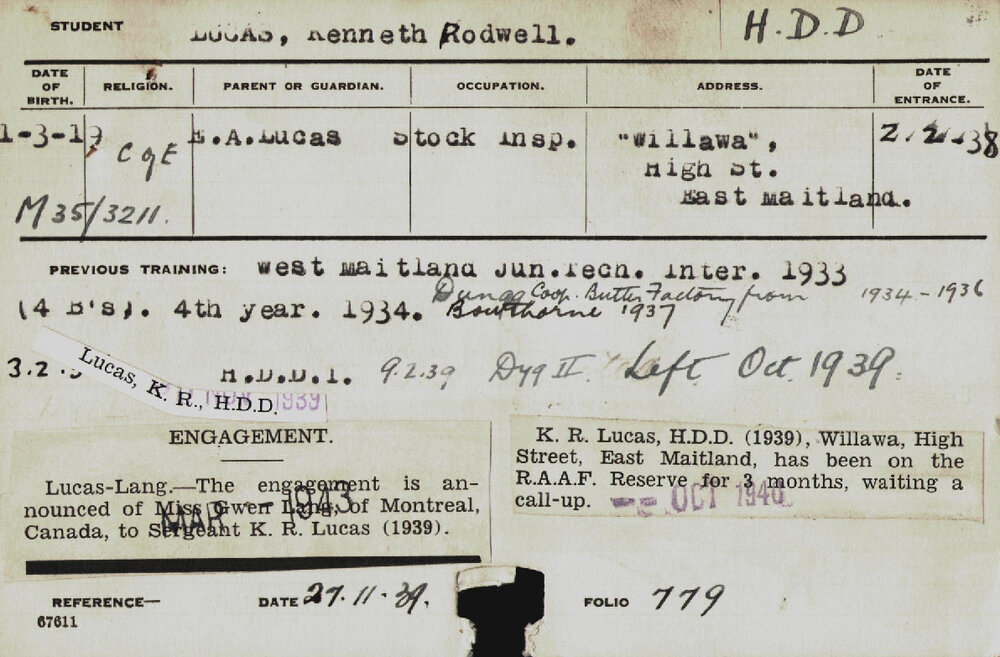 STUDENT LUCAS, Kenneth Rodwell. H.D.D
DATE OF BIRTH. RELIGION. PARENT OR GUARDIAN. OCCUPATION. ADDRESS. DATE OF ENTRANCE.
1-3-19 C of E E.A.Lucas Stock Insp. "Willawa", 2/2/38
High St.
East Maitland.
M35/3211.
PREVIOUS TRAINING: West Maitland Jun.Tech. Inter. 1933
Dungog Coop. Butter Factory from 1934-1936
(4 B's). 4th year. 1934. Bowthorne 1937
3.2. H.D.D.I. 9.2.39 Left Oct. 1939.
Lucas, K. R., H.D.D. 1939
ENGAGEMENT.
Lucas-Lang.—The engagement is an-
nounced of Miss Gwen Lang, of Montreal,
Canada, to Sergeant K. R. Lucas (1939).
MAR 1943
K. R. Lucas, H.D.D. (1939), Willawa, High
Street, East Maitland, has been on the
R.A.A.F. Reserve for 3 months, waiting a
call-up.
OCT 1940
REFERENCE— DATE 27.11.39. FOLIO 779
67611